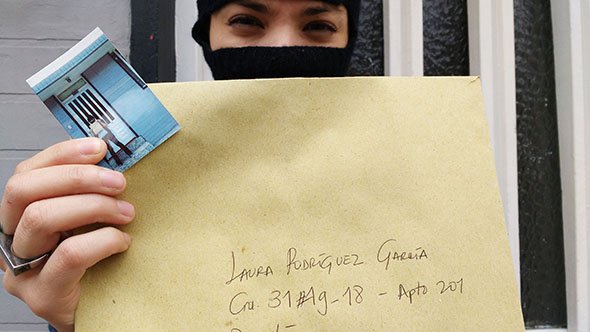 LAURA RODRÍGUEZ GARCÍA
Cra. 31 #49-18 - Apto 201